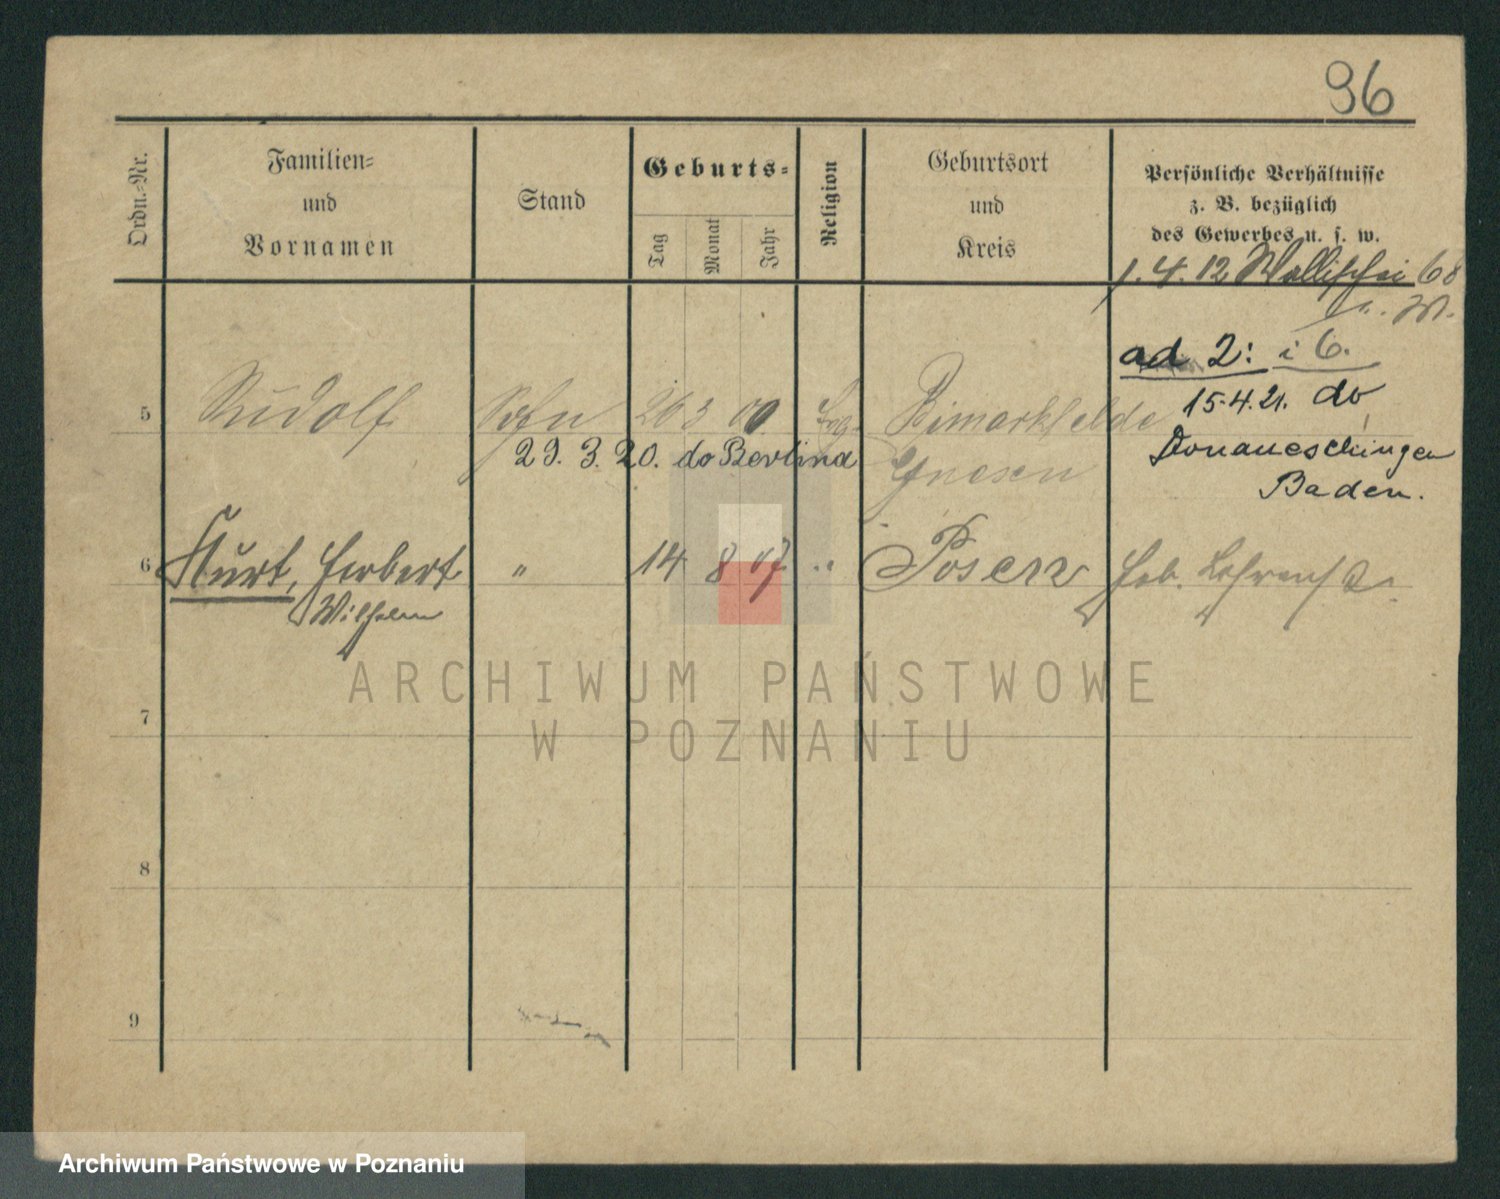 96
Ordn.-Nr.
Familien-
und
Vornamen
Stand
Geburts-
Tag
Monat
Jahr
Religion
Geburtsort
und
Kreis
Persönliche Verhältnisse
z. B. bezüglich
des Gewerbes u. s. w.
1. 4. 12 Wallischei 68
ad 2: i 6.
15.4.21. do
Donaueschingen
Baden.
5 Rudolf Sohn 26 3 00
29. 3. 20. do Berlina
Gnesen
6 Kurt, Herbert " 14 8 07 " Posen
Wilhelm
7
8
9
ARCHIWUM PAŃSTWOWE
W POZNANIU
Archiwum Państwowe w Poznaniu